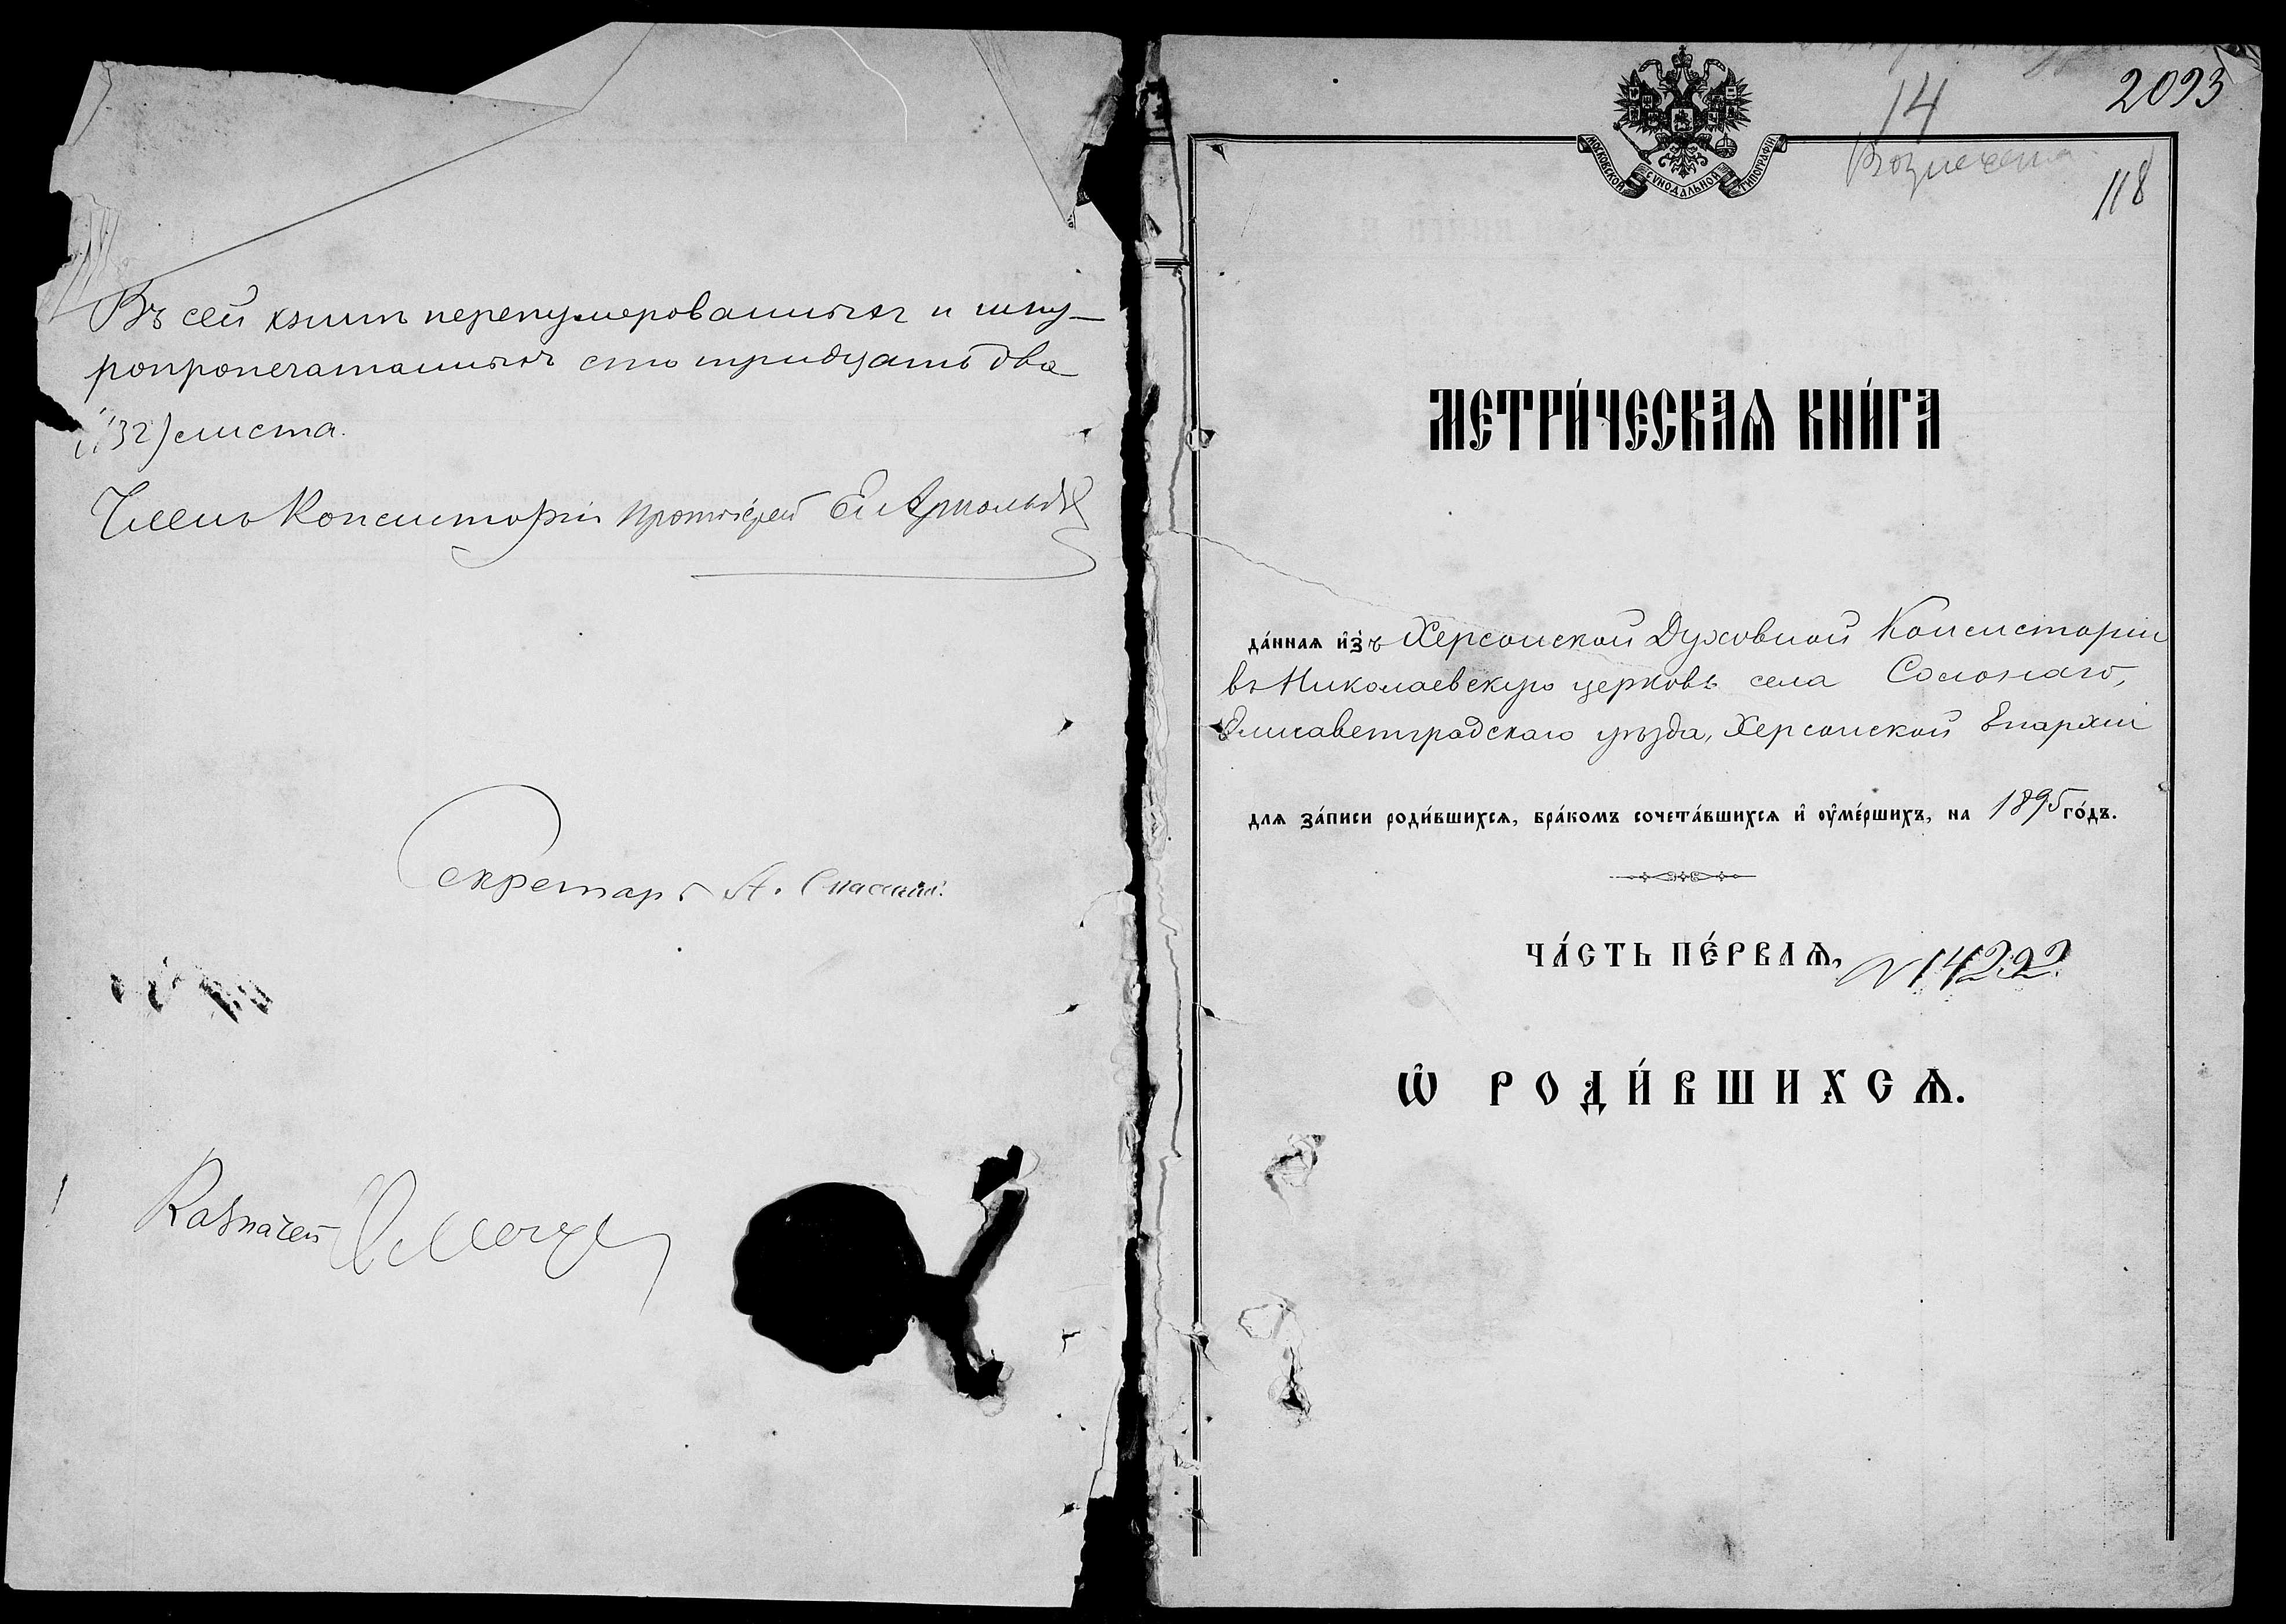 Въ сей книгѣ перенумерованныхъ и шну-
ропропечатанныхъ сто тридцать два
(132) листа.
Членъ Консисторіи Протоіерей Арнольдъ
Секретарь А. Спасскій.
Казначей
2093
14
118
МОСКОВСКОЙ СѴНОДАЛЬНОЙ ТИПОГРАФІИ
МЕТРИ́ЧЕСКАѦ КНИ́ГА
да́ннаѧ и҆зъ Херсонской Духовной Консисторіи
въ Николаевскую церковь села Солонаго,
Елисаветградскаго уѣзда, Херсонской Епархіи
длѧ за́писи роди́вшихсѧ, бра́комъ сочета́вшихсѧ и҆ ᲂу҆ме́ршихъ, на 1895 го́дъ.
ЧА́СТЬ ПЕ́РВАѦ, № 14222.
Ѽ РОДИ́ВШИХСѦ.